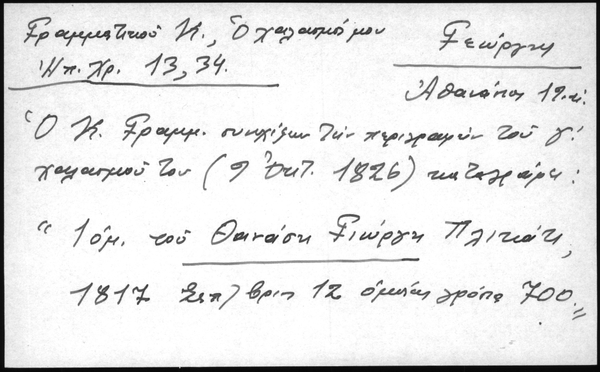 Γραμματικοῦ Κ., Ὁ χαλασμός μου
Ἠπ. Χρ. 13, 34.
Γεώργη
Ἀθανάσης 19.αἰ.
Ὁ Κ. Γραμμ. συνεχίζων τὴν περιγραφὴν τοῦ γ!
χαλασμοῦ του (9 Ὀκτ. 1826) καταγράφει:
" 1 ὁμ. τοῦ Θανάση Γιώργη Πλικάτι,
1817 Σεπ/βρίου 12 ὁμοίως γρόσια 700."